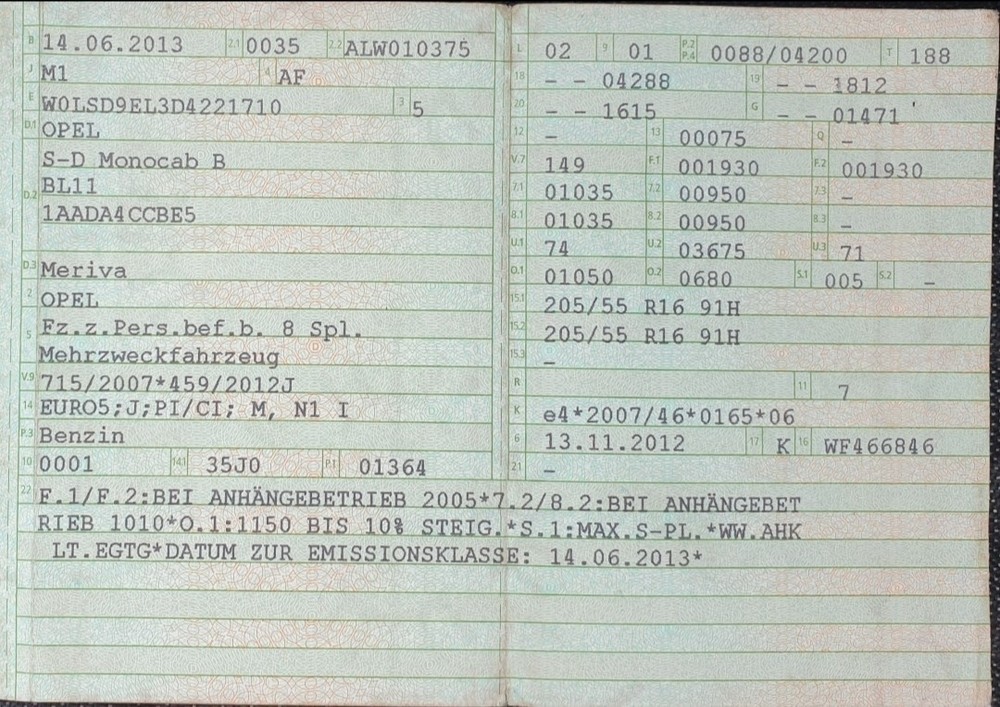 B 14.06.2013 2.1 0035 2.2 ALW010375
J M1 4 AF
E W0LSD9EL3D4221710 3 5
D.1 OPEL
S-D Monocab B
D.2 BL11
1AADA4CCBE5
D.3 Meriva
2 OPEL
5 Fz.z.Pers.bef.b. 8 Spl.
Mehrzweckfahrzeug
V.9 715/2007*459/2012J
14 EURO5;J;PI/CI; M, N1 I
P.3 Benzin
10 0001 14.1 35J0 P.1 01364
L 02 9 01 P.2 P.4 0088/04200 T 188
18 - - 04288 19 - - 1812
20 - - 1615 G - - 01471
12 - 13 00075 Q -
V.7 149 F.1 001930 F.2 001930
7.1 01035 7.2 00950 7.3 -
8.1 01035 8.2 00950 8.3 -
U.1 74 U.2 03675 U.3 71
O.1 01050 O.2 0680 S.1 005 S.2 -
15.1 205/55 R16 91H
15.2 205/55 R16 91H
15.3 -
R 11 7
K e4*2007/46*0165*06
6 13.11.2012 17 K 16 WF466846
21 -
22 F.1/F.2:BEI ANHÄNGEBETRIEB 2005*7.2/8.2:BEI ANHÄNGEBET
RIEB 1010*O.1:1150 BIS 10% STEIG.*S.1:MAX.S-PL.*WW.AHK
LT.EGTG*DATUM ZUR EMISSIONSKLASSE: 14.06.2013*